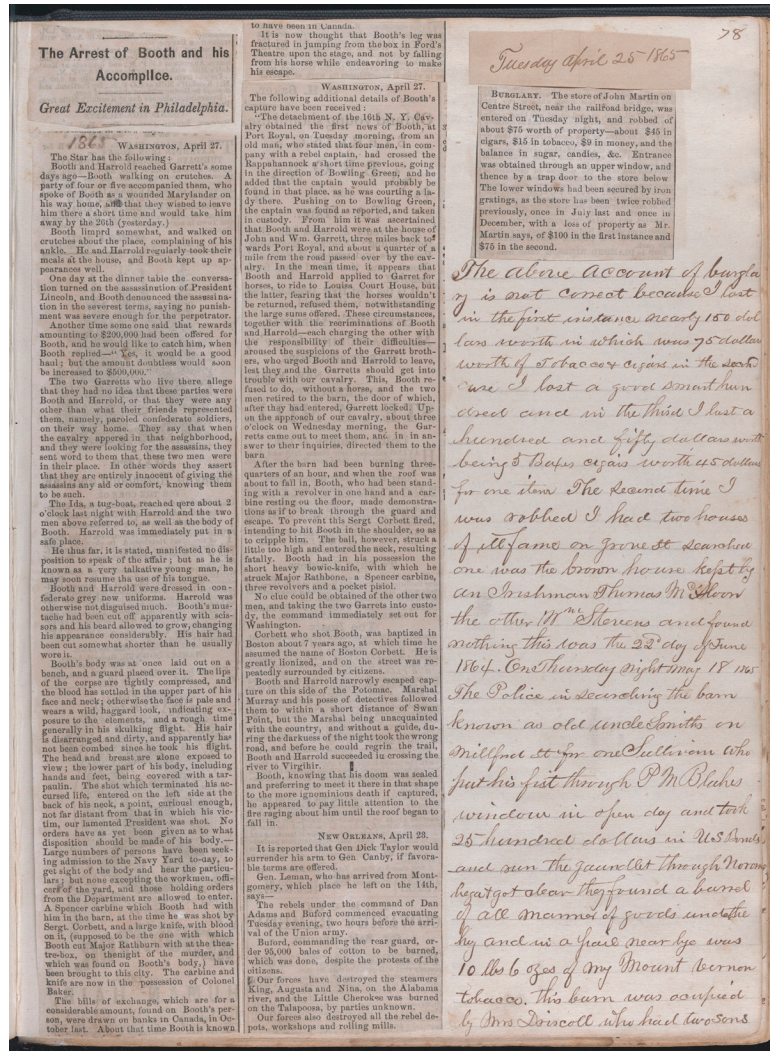 78
The Arrest of Booth and his
Accomplice.
Great Excitement in Philadelphia.
1865
WASHINGTON, April 27.
The Star has the following:
Booth and Harrold reached Garrett's some
days ago—Booth walking on crutches. A
party of four or five accompanied them, who
spoke of Booth as a wounded Marylander on
his way home, and that they wished to leave
him there a short time and would take him
away by the 26th (yesterday.)
Booth limprd somewhat, and walked on
crutches about the place, complaining of his
ankle. He and Harrold regularly took their
meals at the house, and Booth kept up ap-
pearances well.
One day at the dinner table the conversa-
tion turned on the assassination of President
Lincoln, and Booth denounced the assassina-
tion in the severest terms, saying no punish-
ment was severe enough for the perpetrator.
Another time some one said that rewards
amounting to $200,000 had been offered for
Booth, and he would like to catch him, when
Booth replied—“Yes, it would be a good
haul; but the amount doubtless would soon
be increased to $500,000.”
The two Garretts who live there allege
that they had no idea that these parties were
Booth and Harrold, or that they were any
other than what their friends represented
them, namely, paroled confederate soldiers,
on their way home. They say that when
the cavalry appered in that neighborhood,
and they were looking for the assassins, they
sent word to them that these two men were
in their place. In other words they assert
that they are entirely innocent of giving the
assassins any aid or comfort, knowing them
to be such.
The Ida, a tug-boat, reached qere about 2
o'clock last night with Harrold and the two
men above referred to, as well as the body of
Booth. Harrold was immediately put in a
safe place.
He thus far, it is stated, manifested no dis-
position to speak of the affair; but as he is
known as a very talkative young man, he
may soon resume tha use of his tongue.
Booth and Harrold were dressed in con-
federate grey new uniforms. Harrold was
otherwise not disguised much. Booth's mus-
tache had been cut off apparently with scis-
sors and his beard allowed to grow, changing
his appearance considerably. His hair had
been cut somewhat shorter than he usually
wore it.
Booth's body was at once laid out on a
bench, and a guard placed over it. The lips
of the corpse are tightly compressed, and
the blood has settled in the upper part of his
face and neck; otherwise the face is pale and
wears a wild, haggard look, indicating ex-
posure to the elements, and a rough time
generally in his skulking flight. His hair
is disarranged and dirty, and apparently has
not been combed since he took his flight.
The head and breast are alone exposed to
view; the lower part of his body, including
hands and feet, being covered with a tar-
paulin. The shot which terminated his ac-
cursed life, entered on the left side at the
back of his neck, a point, curious! enough,
not far distant from that in which his vic-
tim, our lamented President was shot. No
orders have as yet been given as to what
disposition should be made of his body.—
Large numbers of persons have been seek-
ing admission to the Navy Yard to-day, to
get sight of the body and hear the particu-
lars; but none excepting the workmen, offi-
cers of the yard, and those holding orders
from the Department are allowed to enter.
A Spencer carbine which Booth had with
him in the barn, at the time he was shot by
Sergt. Corbett, and a large knife, with blood
on it, (supposed to be the one with which
Booth cut Major Rathburn with at the thea-
tre-box, on thenight of the murder, and
which was found on Booth's body,) have
been brought to this city. The carbine and
knife are now in the possession of Colonel
Baker.
The bills of exchange, which are for a
considerable amount, found on Booth's per-
son, were drawn on banks in Canada, in Oc-
tober last. About that time Booth is known
to have been in Canada.
It is now thought that Booth's leg was
fractured in jumping from the box in Ford's
Theatre upon the stage, and not by falling
from his horse while endeavoring to make
his escape.
WASHINGTON, April 27.
The following additional details of Booth's
capture have been received:
“The detachment of the 16th N. Y. Cav-
alry obtained the first news of Booth, at
Port Royal, on Tuesday morning, from an
old man, who stated that four men, in com-
pany with a rebel captain, had crossed the
Rappahannock a short time previous, going
in the direction of Bowling Green, and he
added that the captain would probably be
found in that place, as he was courting a la-
dy there. Pushing on to Bowling Green,
the captain was found as reported, and taken
in custody. From him it was ascertained
that Booth and Harrold were at the house of
John and Wm. Garrett, three miles back to-
wards Port Royal, and about a quarter of a
mile from the road passed over by the cav-
alry. In the mean time, it appears that
Booth and Harrold applied to Garret for
horses, to ride to Louisa Court House, but
the latter, fearing that the horses wouldn't
be returned, refused them, notwithstanding
the large sums offered. These circumstances,
together with the recriminations of Booth
and Harrold—each charging the other with
the responsibility of their difficulties—
aroused the suspicions of the Garrett broth-
ers, who urged Booth and Harrold to leave,
lest they and the Garretts should get into
trouble with our cavalry. This, Booth re-
fused to do, without a horse, and the two
men retired to the barn, the door of which,
after they had entered, Garrett locked. Up-
on the approach of our cavalry, about three
o'clock on Wednesday morning, the Gar-
retts came out to meet them, and in in an-
swer to their inquiries, directed them to the
barn
After the barn had been burning three-
quarters of an hour, and when the roof was
about to fall in, Booth, who had been stand-
ing with a revolver in one hand and a car-
bine resting on the floor, made demonstra-
tions as if to break through the guard and
escape. To prevent this Sergt. Corbett fired,
intending to hit Booth in the shoulder, so as
to cripple him. The ball, however, struck a
little too high and entered the neck, resulting
fatally. Booth had in his possession the
short heavy bowie-knife, with which he
struck Major Rathbone, a Spencer carbine,
three revolvers and a pocket pistol.
No clue could be obtained of the other two
men, and taking the two Garretts into custo-
dy, the command immediately set out for
Washington.
Corbett who shot Booth, was baptized in
Boston about 7 years ago, at which time he
assumed the name of Boston Corbett. He is
greatly lionized, and on the street was re-
peatedly surrounded by citizens.
Booth and Harrold narrowly escaped cap-
ture on this side of the Potomac. Marshal
Murray and his posse of detectives followed
them to within a short distance of Swan
Point, but the Marshal being unacquainted
with the country, and without a guide, du-
ring the darkness of the night took the wrong
road, and before he could regrin the trail,
Booth and Harrold succeeded in crossing the
river to Virgihir.
Booth, knowing that his doom was sealed
and preferring to meet it there in that shape
to the more ignominious death if captured,
he appeared to pay little attention to the
fire raging about him until the roof began to
fall in.
NEW ORLEANS, April 23.
It is reported that Gen Dick Taylor would
surrender his arm to Gen. Canby, if favora-
ble terms are offered.
Gen. Leman, who has arrived from Mont-
gomery, which place he left on the 14th,
says—
The rebels under the command of Dan
Adams and Buford commenced evacuating
Tuesday evening, two hours before the arri-
val of the Union army.
Buford, commanding the rear guard, or-
der 95,000 bales of cotton to be burned,
which was done, despite the protests of the
citizens.
Our forces have destroyed the steamers
King, Augusta and Nina, on the Alabama
river, and the Little Cherokee was burned
on the Talapoosa, by parties unknown.
Our forces also destroyed all the rebel de-
pots, workshops and rolling mills.
Tuesday April 25 1865
BURGLARY. The store of John Martin on
Centre Street, near the railroad bridge, was
entered on Tuesday night, and robbed of
about $75 worth of property—about $45 in
cigars, $15 in tobacco, $9 in money, and the
balance in sugar, candies, &c. Entrance
was obtained through an upper window, and
thence by a trap door to the store below
The lower windows had been secured by iron
gratings, as the store has been twice robbed
previously, once in July last and once in
December, with a loss of property as Mr.
Martin says, of $100 in the first instance and
$75 in the second.
The above account of burgla
ry is not correct because I lost
in the first instance nearly 150 dol
lars worth in which was 75 dollars
worth of Tobacco & cigars in the
I lost a good smart hun
dred and in the third I lost a
hundred and fifty dollars worth
being 5 Boxes cigars worth 45 dollars
for one item The second time I
was robbed I had two houses
of ill fame on grove st searched
one was the brown house kept by
an Irishman Thomas
the other Wm Stevens and found
nothing this was the 22d day of June
1864. One Thursday night may 18 1865
The Police in searching the barn
known as old uncle Smiths on
Milford st for one Sullivan who
put his fist through P M Blakes
window in open day and took
25 hundred dollars in U S Bonds
and run the gauntlet through
got clear they found a barrel
of all manner of goods under the
hay and in a pail near bye was
10 lbs 6 ozes of my Mount Vernon
tobacco. this barn was occupied
by Mrs Driscoll who had two sons